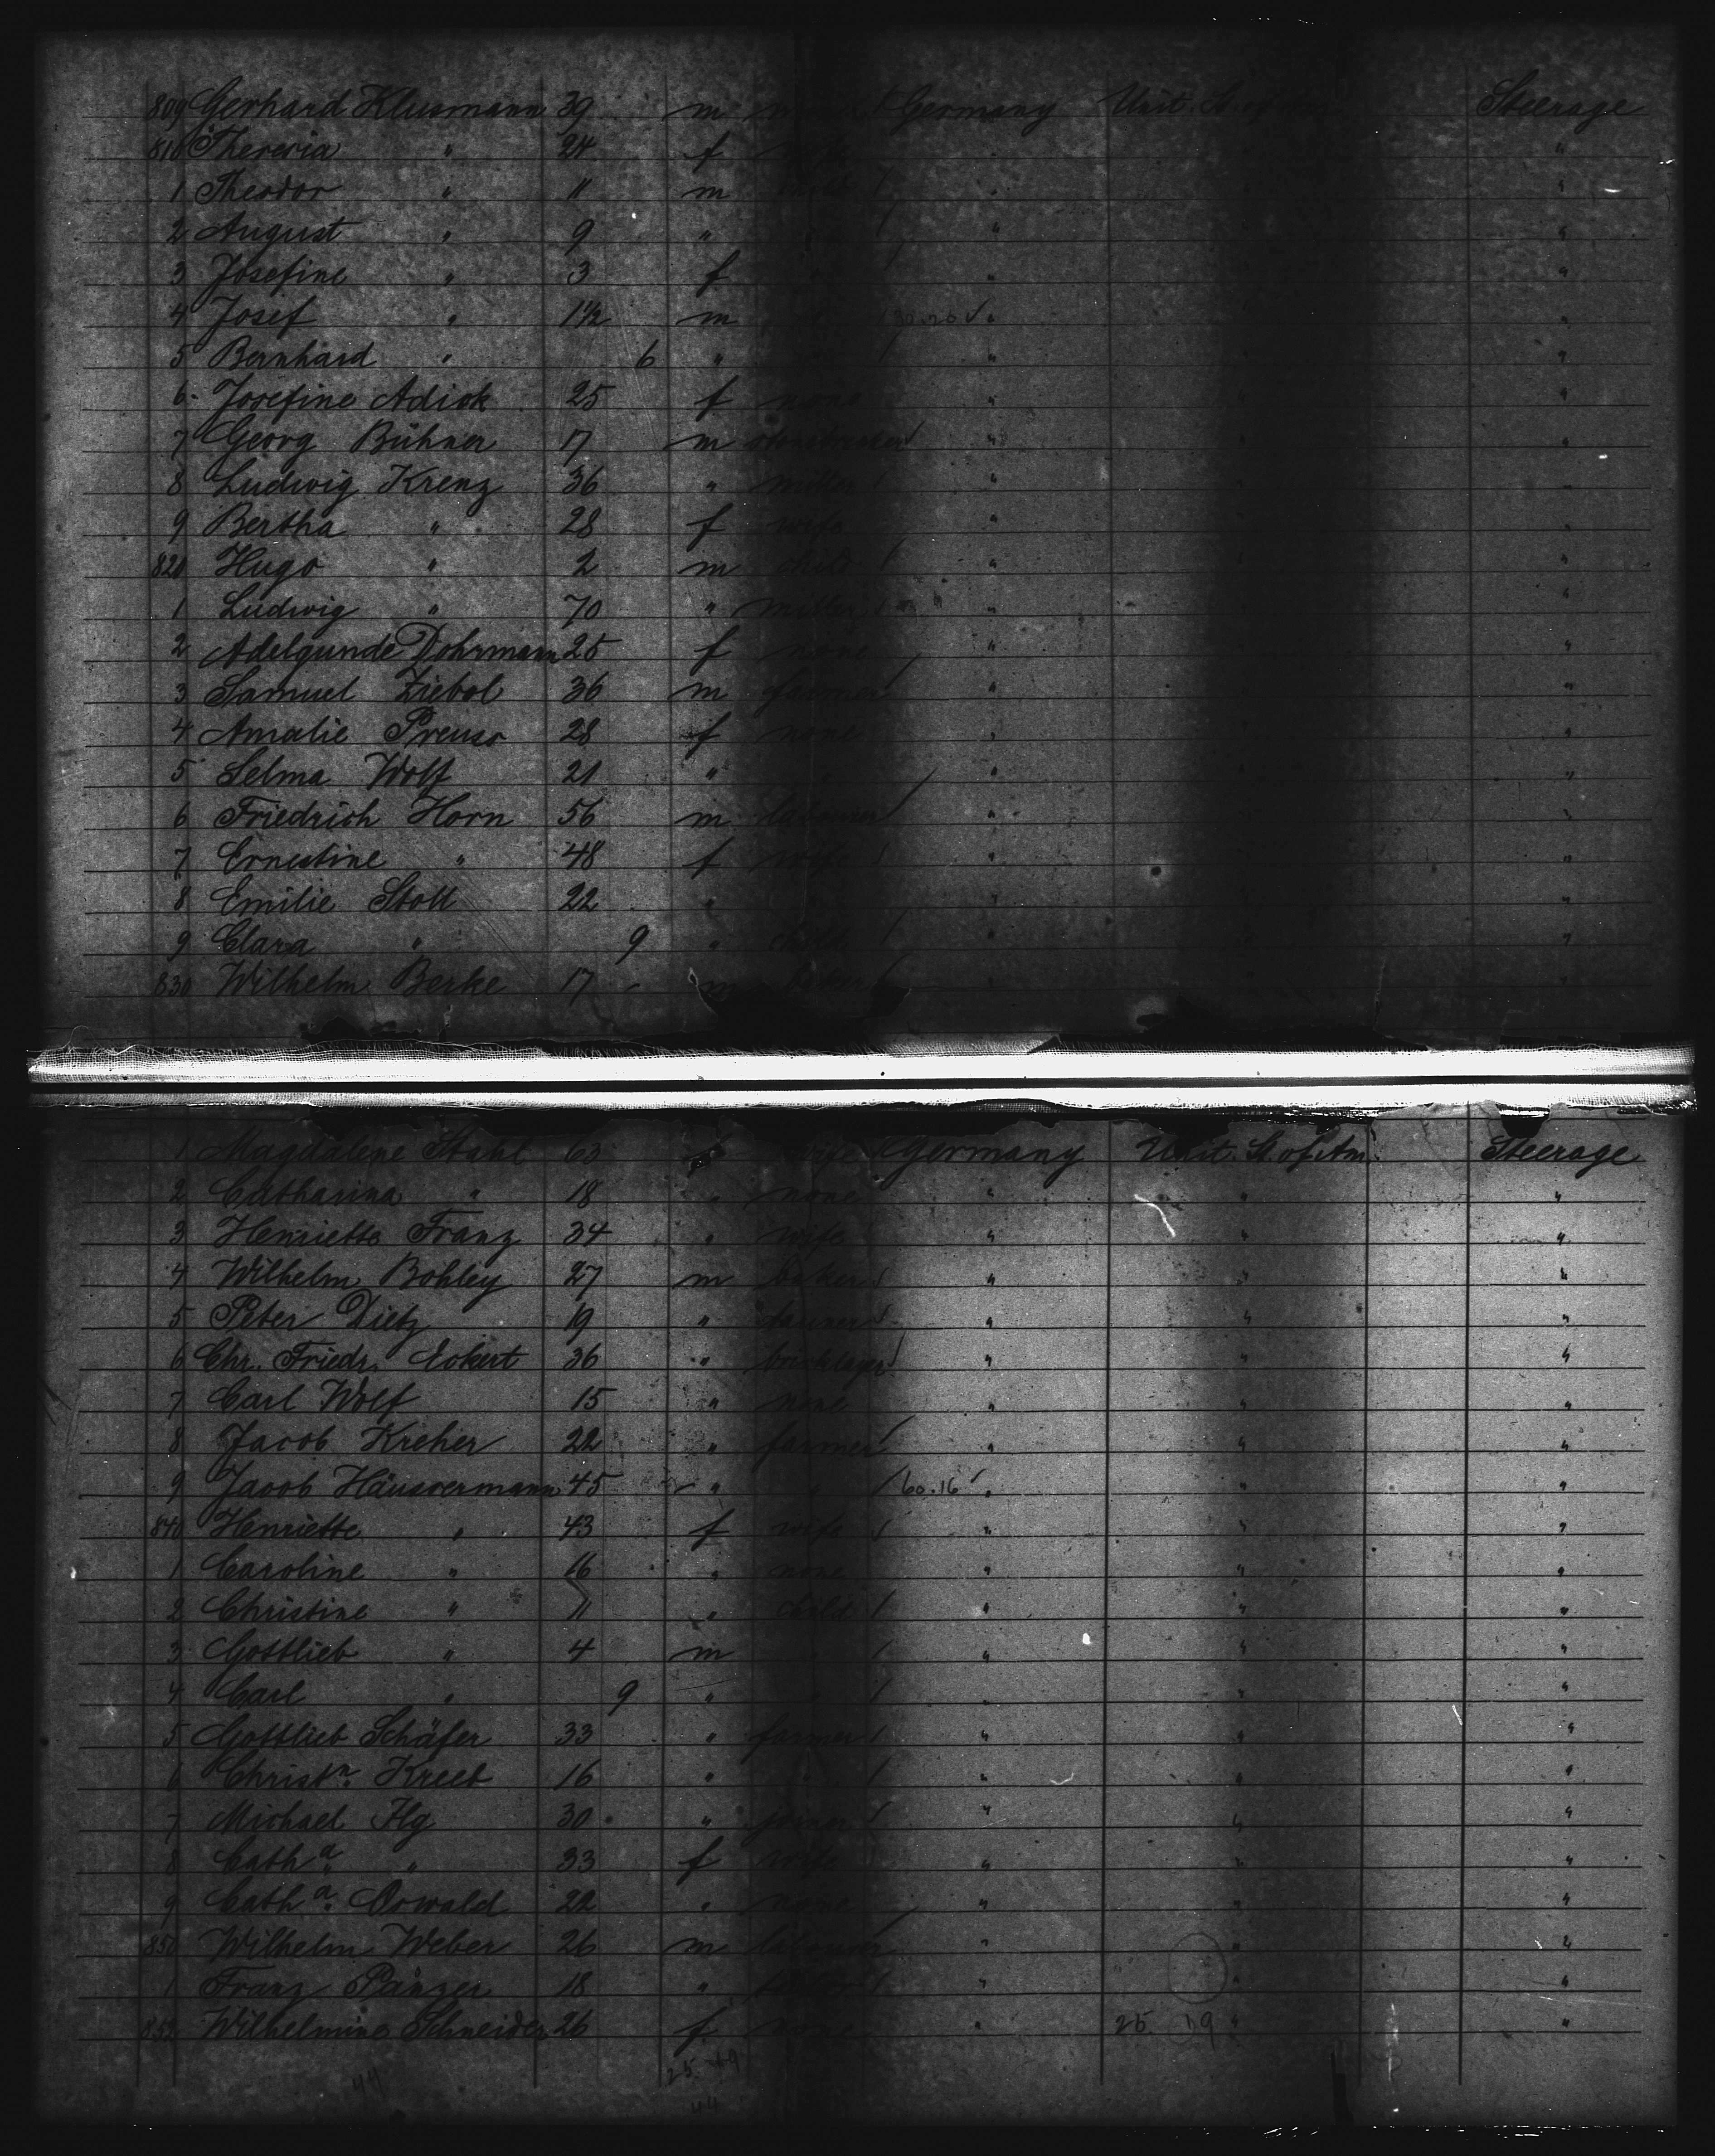 809 Gerhard Klusmann 39 m Germany Unit. St. of Steerage
810 Theresia " 24 f "
1 Theodor " 11 m "
2 August " 9 " " "
3 Josefine " 3 f " "
4 Josef " 1½ m 30.20 " "
5 Bernhard " 6 " " "
6 Josefine Adick 25 f none " "
7 Georg Bühner 17 m " "
8 Ludwig Krenz 36 " miller " "
9 Bertha " 28 f wife " "
820 Hugo " 2 m child " "
1 Ludwig " 70 " miller " "
2 Adelgunde Dohrmann 25 f none " "
3 Samuel Ziebol 36 m farmer " "
4 Amalie Preuss 28 f none " "
5 Selma Wolf 21 " " "
6 Friedrich Horn 56 m labourer " "
7 Ernestine " 48 f wife " "
8 Emilie Stoll 22 " " "
9 Clara " 9 " child " "
830 Wilhelm Berke 17 m baker " "
1 Magdalene Stahl 63 f wife Germany Unit. St. of Am. Steerage
2 Catharina " 18 " none " " "
3 Henriette Franz 34 " wife " " "
4 Wilhelm Bohley 27 m baker " " "
5 Peter Dietz 19 " " " "
6 Chr. Friedr. Eckert 36 " bricklayer " " "
7 Carl Wolf 15 " none " " "
8 Jacob Kreher 22 " farmer " " "
9 Jacob Häussermann 45 " " 60.16 " " "
840 Henriette " 43 f wife " " "
1 Caroline " 16 " none " " "
2 Christine " 11 " child " " "
3 Gottlieb " 4 m " " " "
4 Carl " 9 " " " " "
5 Gottlieb Schäfer 33 " farmer " " "
6 Christn. Kreeb 16 " " " " "
7 Michael Ilg 30 " joiner " " "
8 Catha. " 33 f wife " " "
9 Catha. Oswald 22 " none " " "
850 Wilhelm Weber 26 m labourer " " "
1 Franz Pänzer 18 " " " "
852 Wilhelmine Schneider 26 f none " 25. 19 " "
44 25.19
44